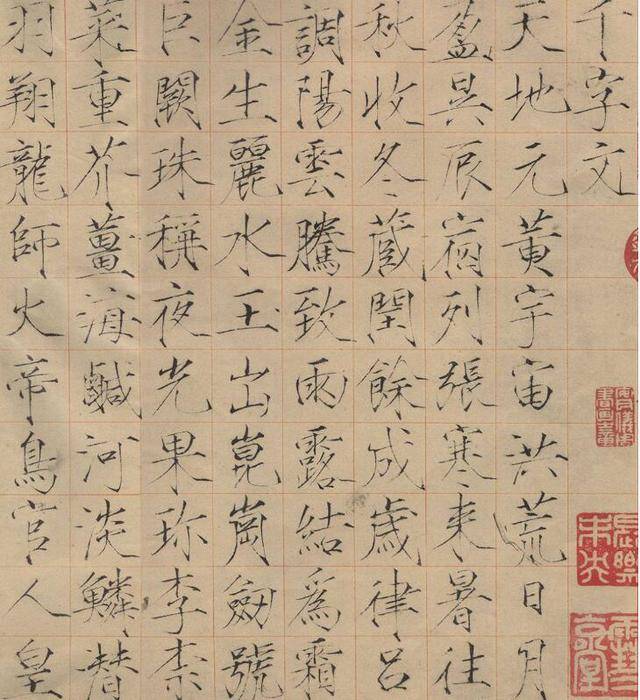 千字文
天地元黃宇宙洪荒日月
盈昃辰宿列張寒来暑往
秋收冬蔵閏餘成歲律呂
調陽雲騰致雨露結爲霜
金生麗水玉出崑崗劒號
巨闕珠稱夜光果珍李柰
菜重芥薑海鹹河淡鱗潜
羽翔龍師火帝鳥官人皇
長樂未央